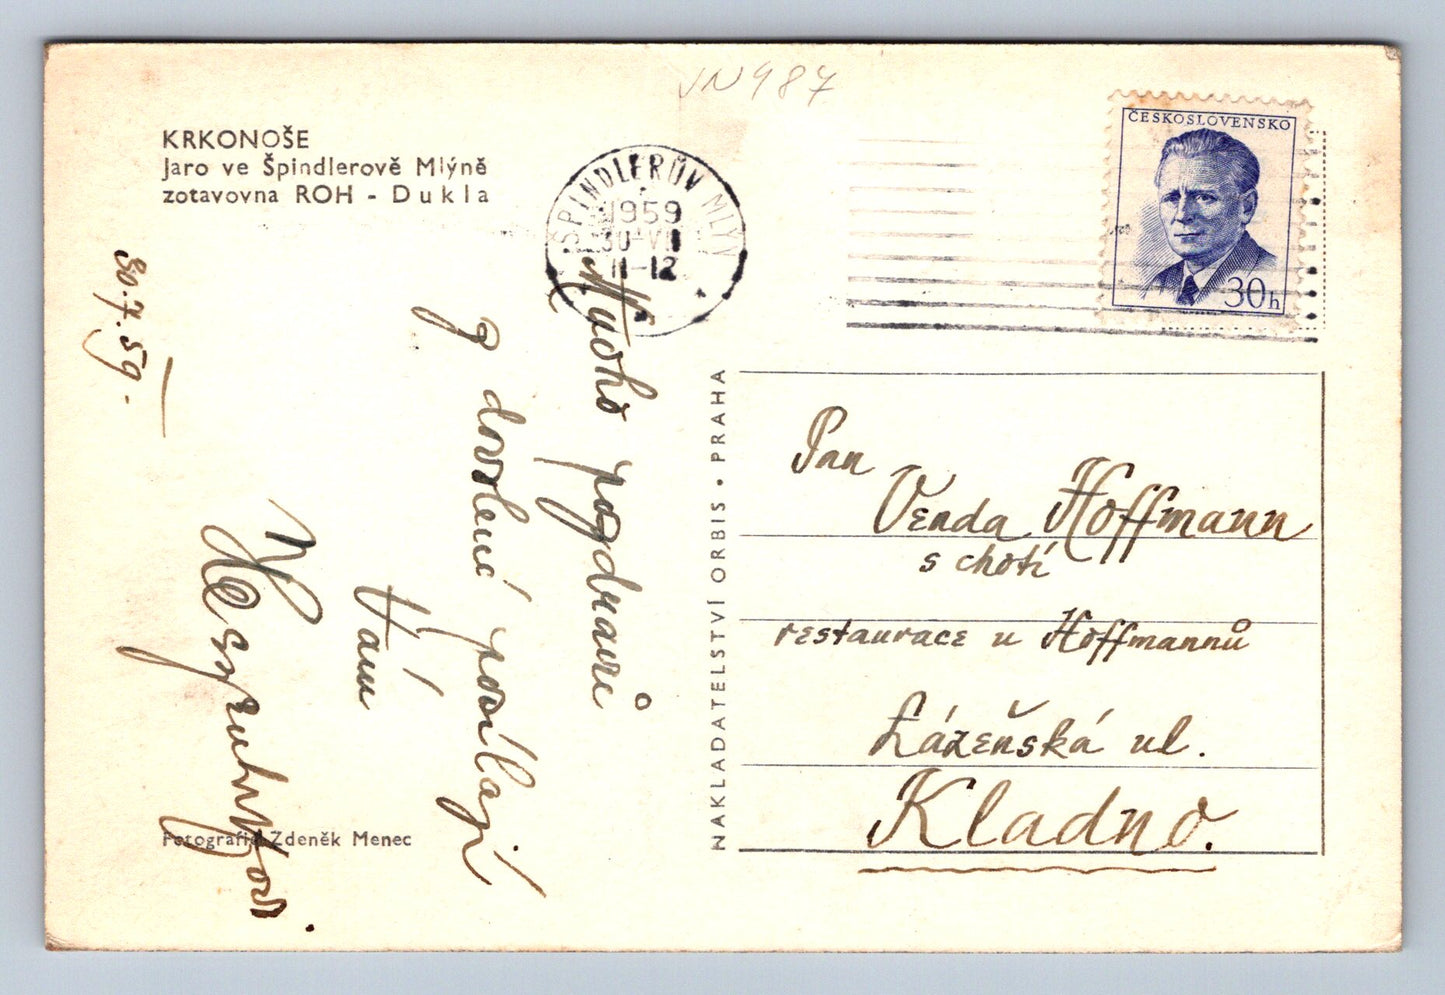 VN987
KRKONOŠE
Jaro ve Špindlerově Mlýně
zotavovna ROH - Dukla
ŠPINDLERŮV MLÝN
1959
30·VII
11-12
ČESKOSLOVENSKO
30h
30.7.59.
Mnoho pozdravů
z dovolené posílají
Vám
Fotografie Zdeněk Menec
NAKLADATELSTVÍ ORBIS · PRAHA
Pan
Venda Hoffmann
s chotí
restaurace u Hoffmannů
Lázeňská ul.
Kladno.